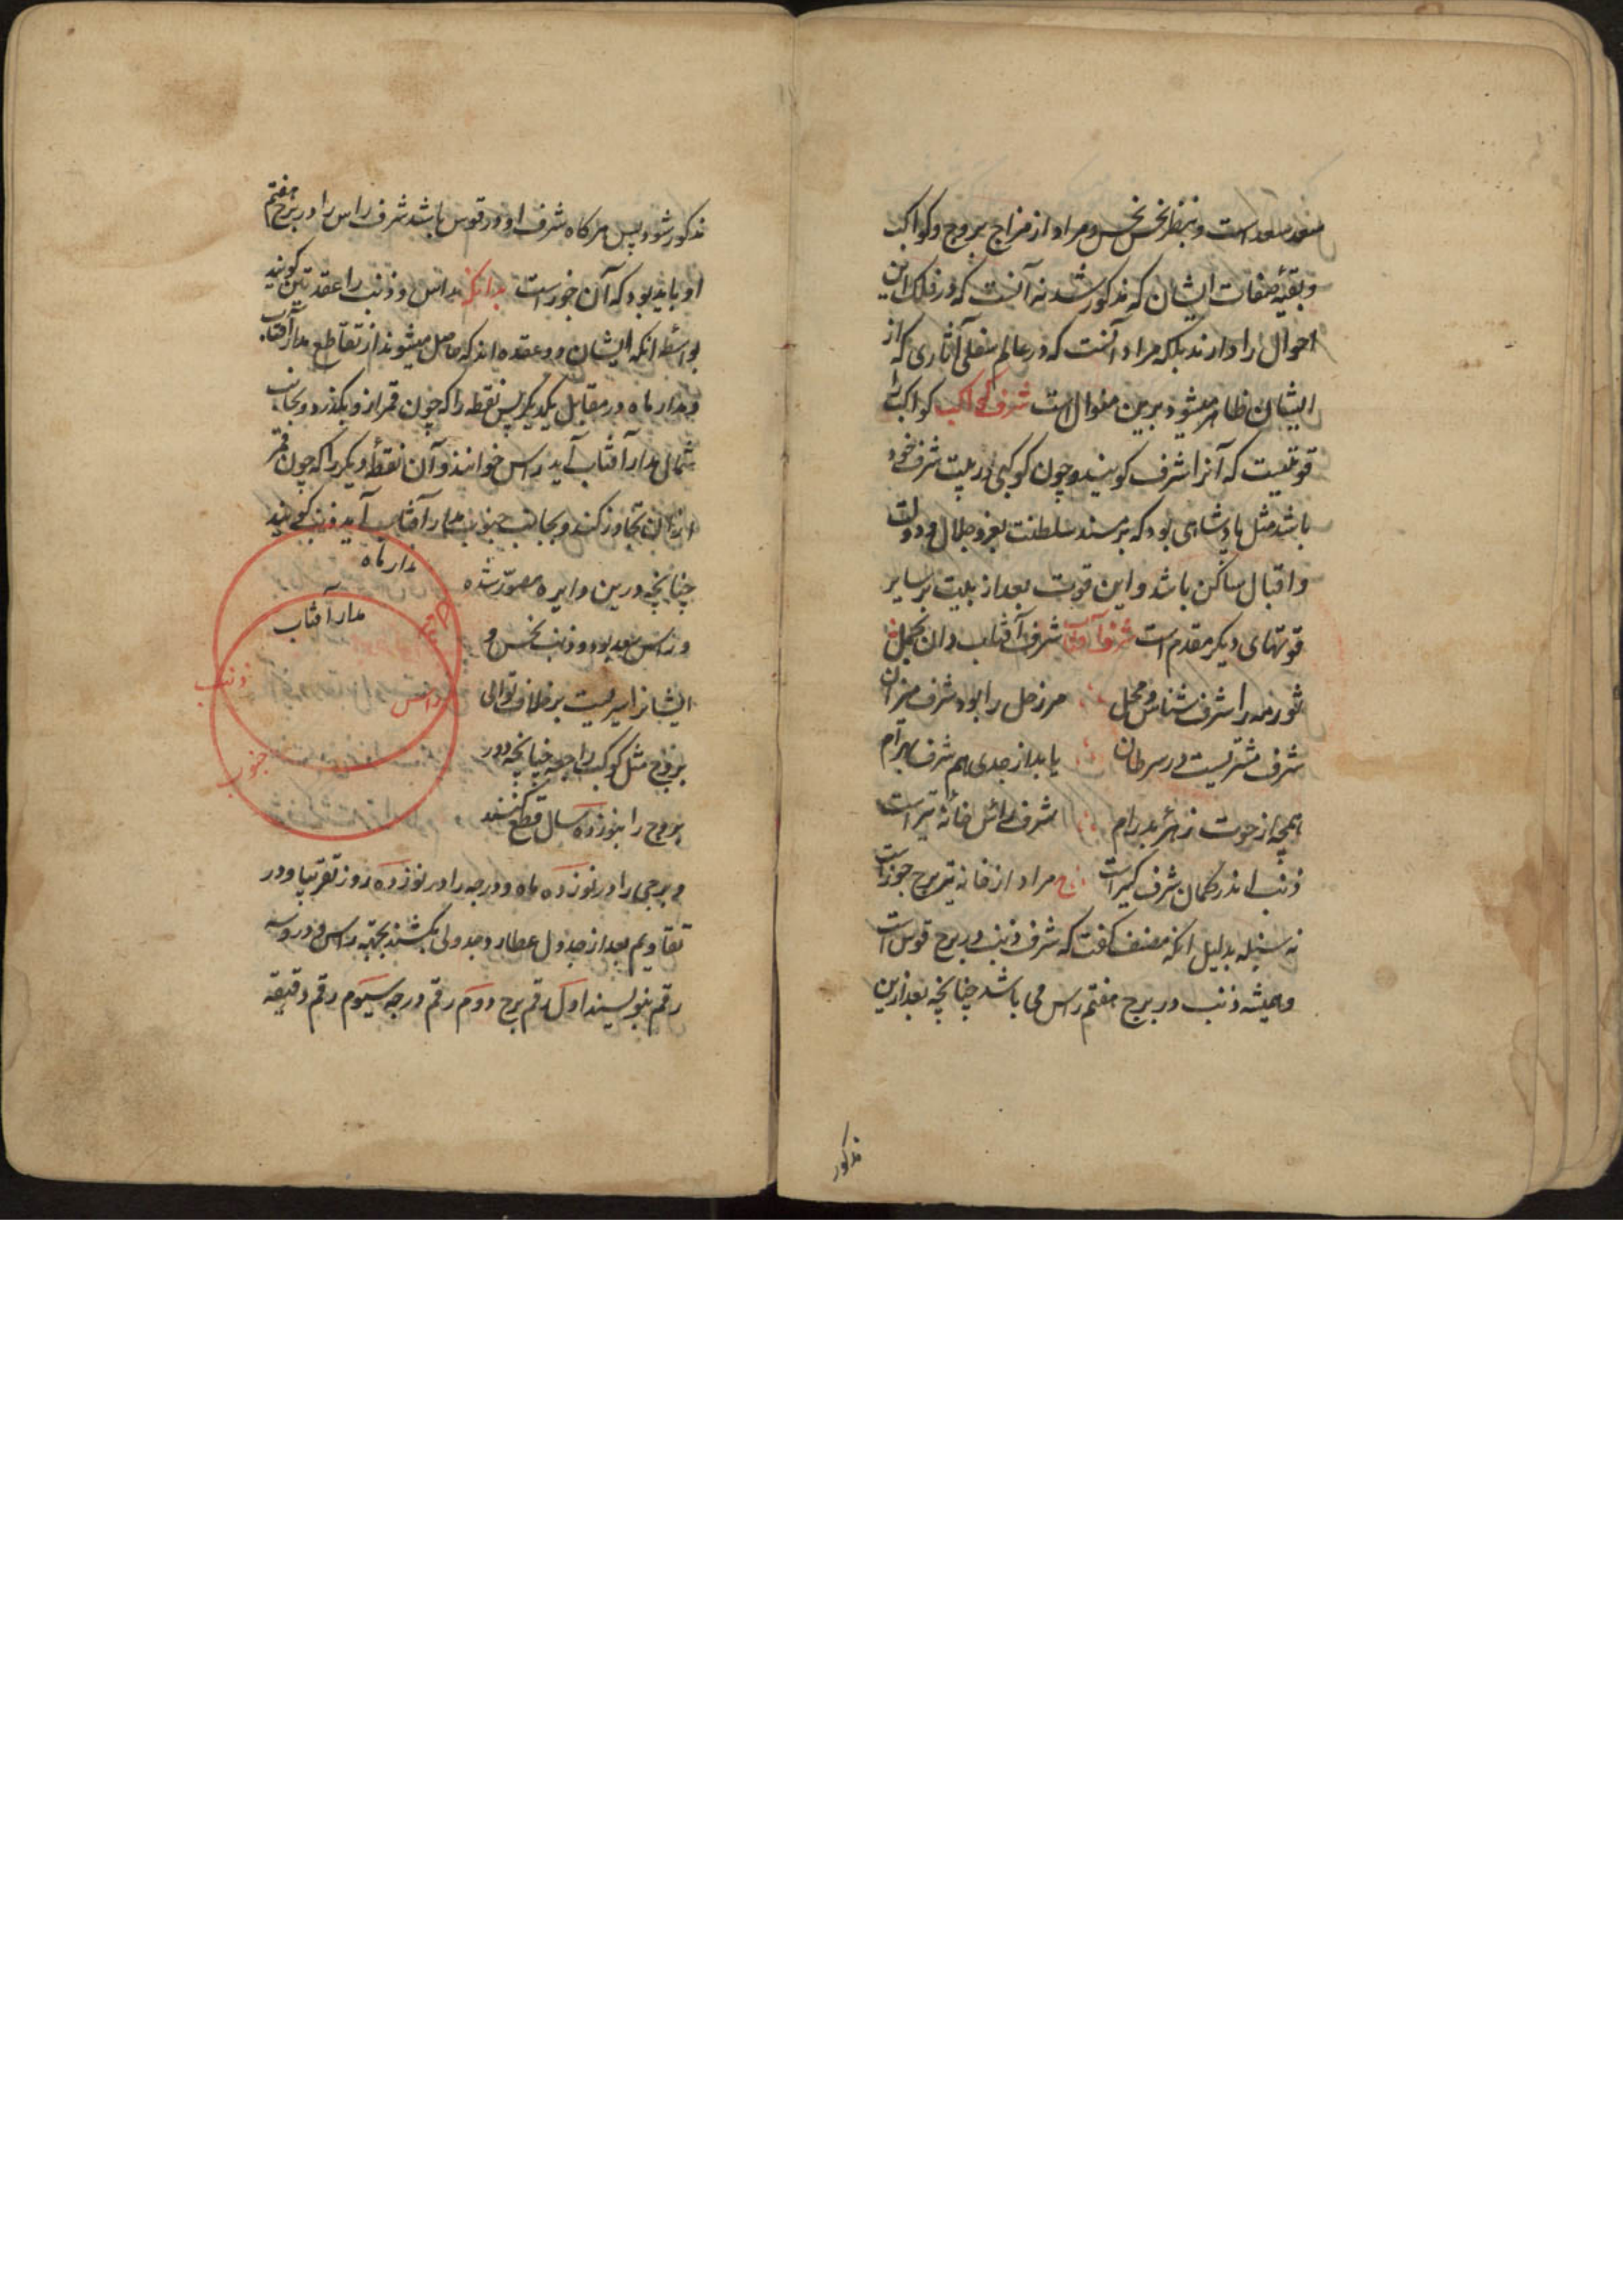 سعد سعد است و بنظر نحس نحس و مراد از مزاج بروج و کواکب
و بقیهٔ صفات ایشان که مذکور شد نه آنست که در فلک این
احوال را دارند بلکه مراد آنست که در عالم سفلی آثاری که از
ایشان ظاهر میشود برین منوال است شرف کواکب کواکب را
قوتیست که آنرا شرف کویند و چون کوکبی در بیت شرف خود
باشد مثل پادشاهی بود که بر مسند سلطنت بعز و جلال و دولت
و اقبال ساکن باشد و این قوت بعد از بیت بر سایر
قوتهای دیکر مقدم است شرف آفتاب شرف آفتاب دان بحمل
ثور مه را شرف شناس و محل مر زحل را بود شرف میزان
شرف مشتریست در سرطان یابد از جدی هم شرف بهرام
همچو از حوت زهرهٔ پدرام شرف رأس خانهٔ تیر است
ذنب اندر کمان شرف کیر است مراد از خانه تیر برج جوزاست
نه سنبله بدلیل انکه مصنف کفت که شرف ذنب در برج قوس است
و همیشه ذنب در برج هفتم راس می باشد چنانچه بعد ازین
مذکور
مذکور شود پس هرکاه شرف او در قوس باشد شرف راس را در برج هفتم
او باید بود که آن جوزاست بدانکه راس و ذنب را عقدتین کویند
بواسطه انکه ایشان دو عقده اند که حاصل میشوند از تقاطع مدار آفتاب
و مدار ماه در مقابل یکدیکر پس نقطه را که چون قمر ازو بکذرد و بجانب
شمالی مدار آفتاب آید راس خوانند و آن نقطهٔ دیکر را که چون قمر
از آن تجاوز کند و بجانب جنوب مدار آفتاب آید ذنب کویند
چنانچه درین دایره مصور شده
و راس سعد بود و ذنب نحس و
ایشانرا سیریست بر خلاف توالی
بروج مثل کوکب راجع چنانچه دور
بروج را بنوزده سال قطع کنند
مدار ماه
مدار آفتاب
ذنب
راس
جنوب
و برجی را در نوزده ماه و درجه را در نوزده روز تقریبا و در
تقاویم بعد از جدول عطارد جدولی بکشند بجهة راس و درو سه
رقم بنویسند اول رقم برج دوم رقم درجه سیوم رقم دقیقه